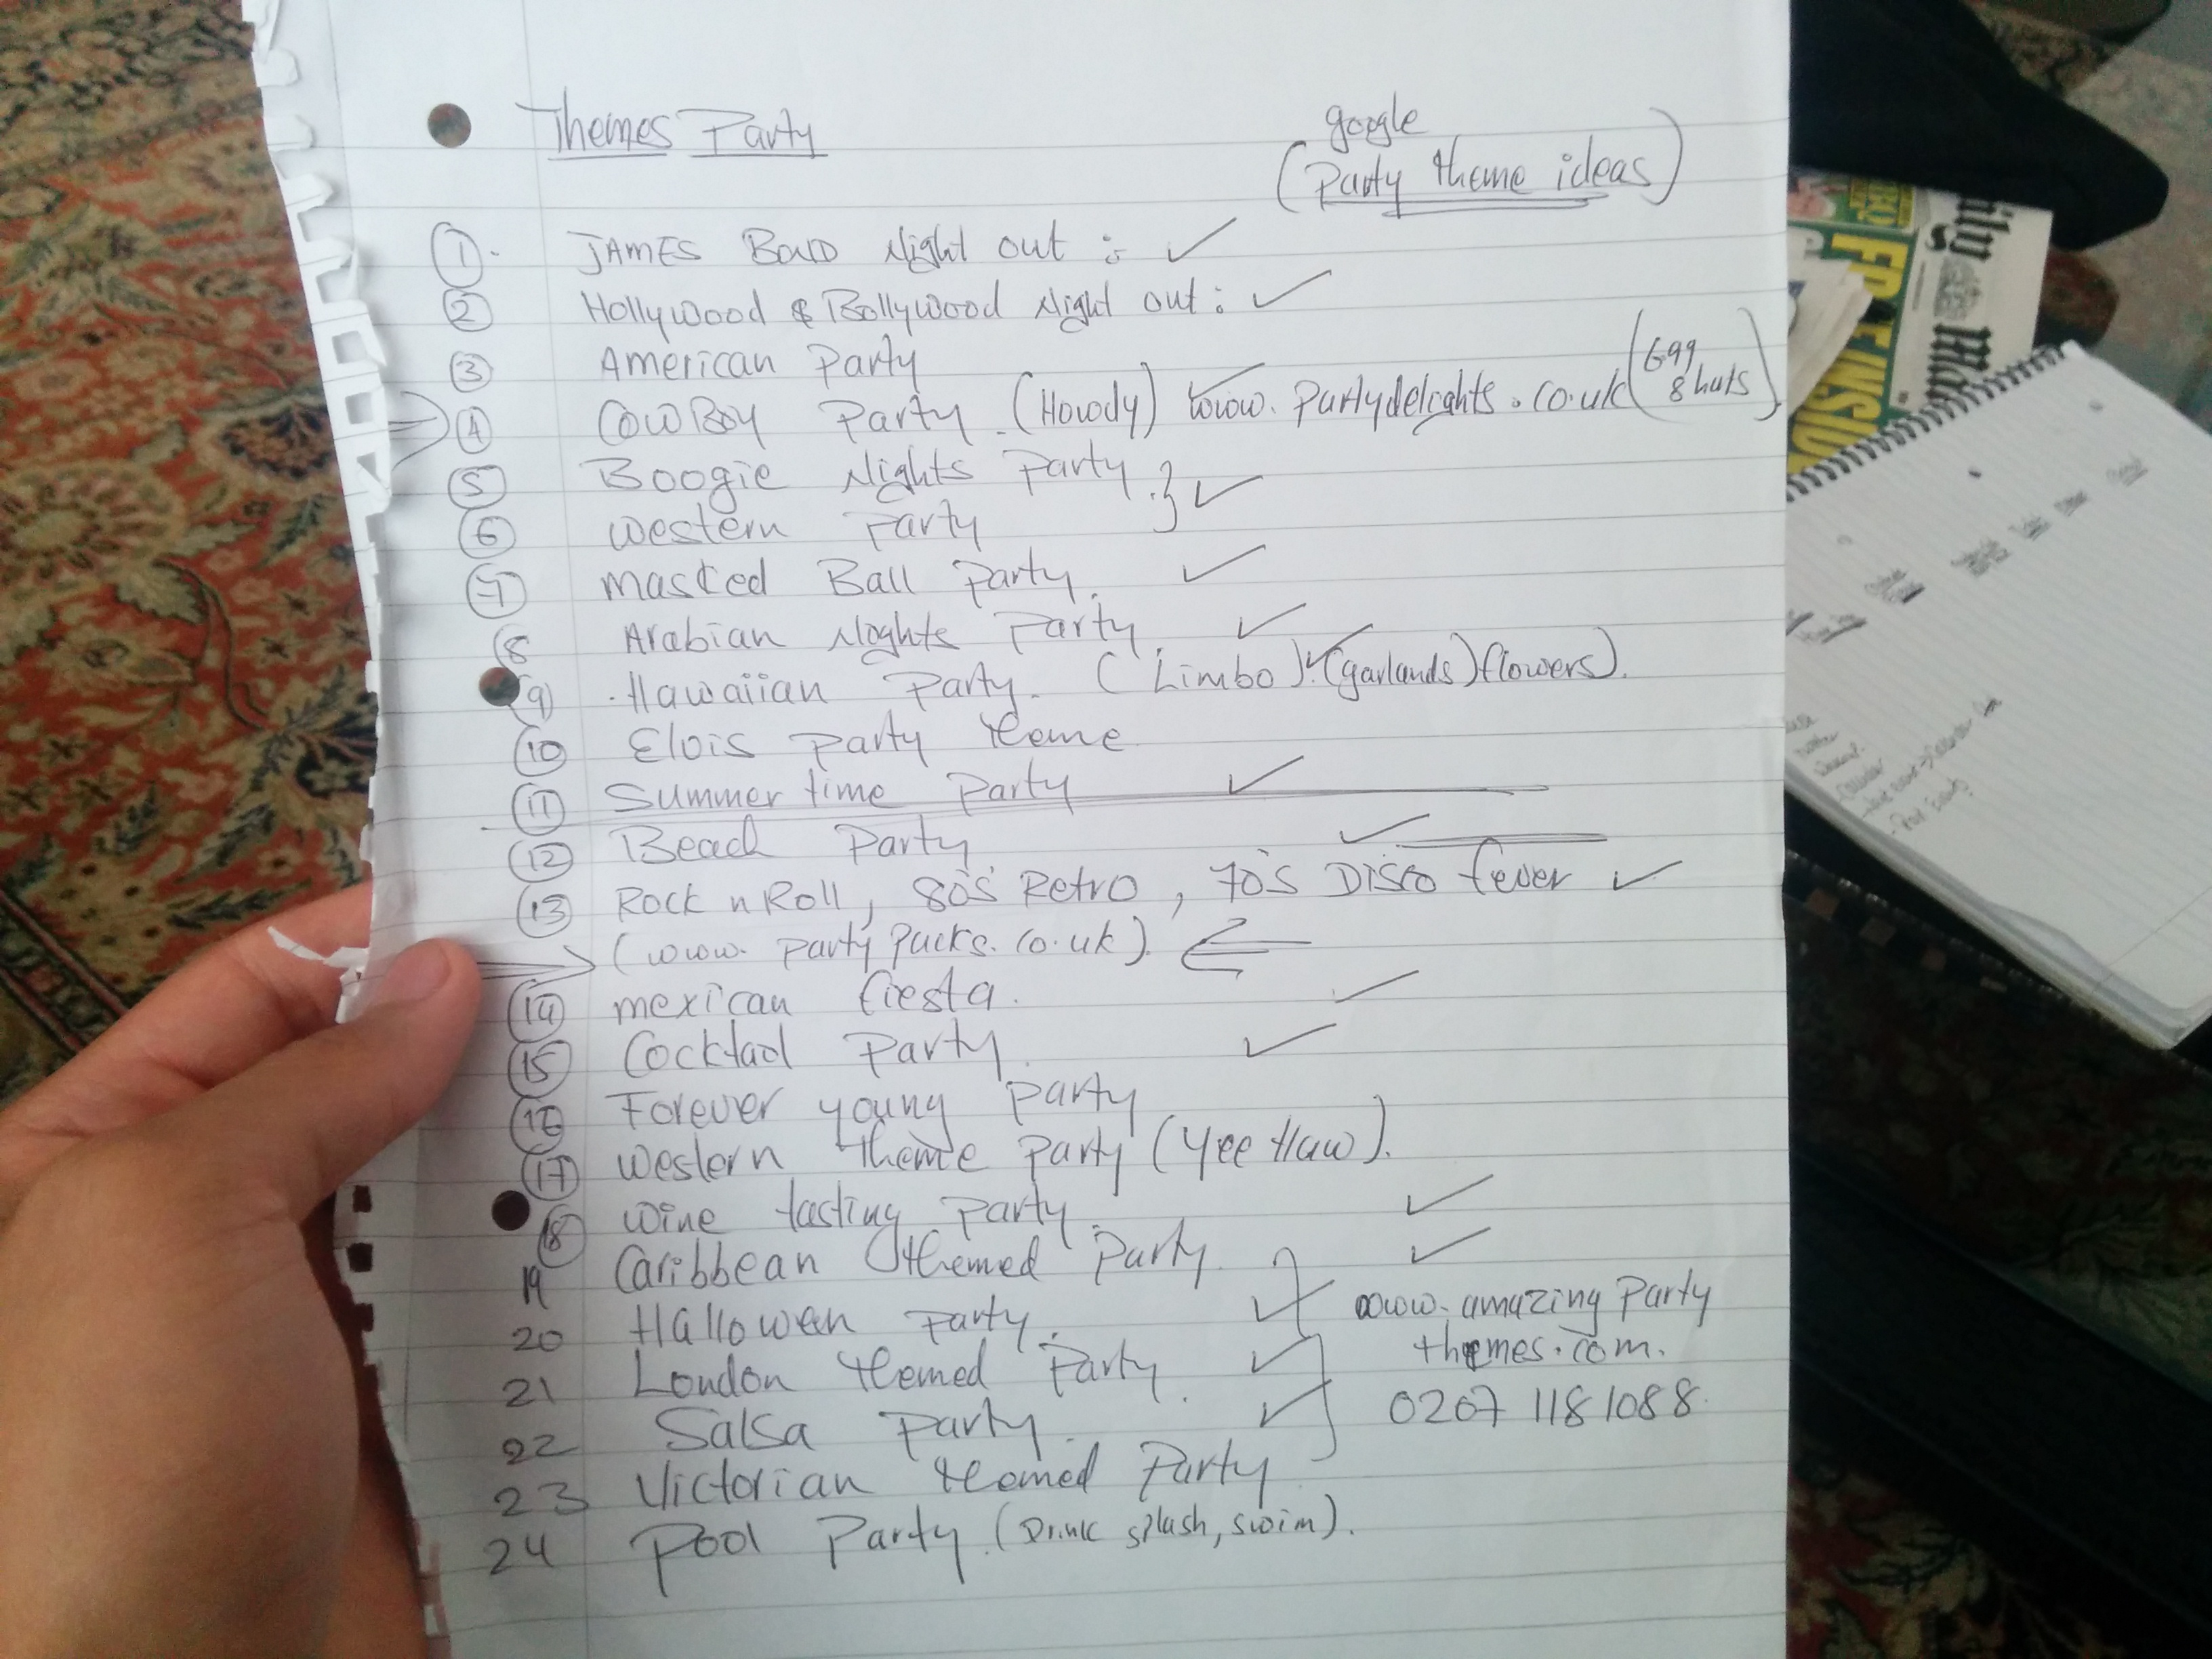 Themes Party
google
(Party theme ideas)
1. JAMES BOND Night out :-
2 Hollywood & Bollywood Night out :
3 American Party
4 COWBOY Party. (Howdy) www.partydelights.co.uk (6.99
8 huts)
5 Boogie Nights Party.
6 Western Party
7 Masked Ball Party.
8 Arabian Nights Party.
9 Hawaiian Party. (Limbo). (garlands) flowers).
10 Elvis Party theme
11 Summer time Party
12 Beach Party
13 Rock n Roll, 80's Retro, 70's Disco fever
(www.partypacks.co.uk).
14 mexican fiesta.
15 Cocktail Party.
16 Forever young party
17 western theme party (Yee Haw).
18 wine tasting party.
19 Caribbean themed Party.
20 Halloween Party.
www.amazing Party
themes.com.
21 London themed Party.
0207 1181088.
22 Salsa Party.
23 Victorian themed Party
24 Pool Party. (Drink splash, swim).